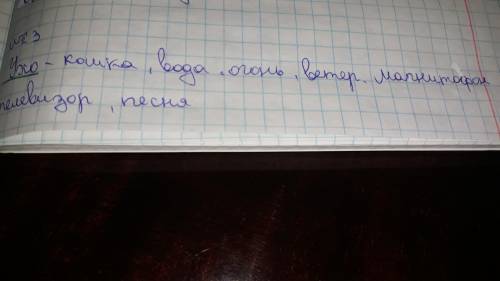 №3
Ухо - кошка, вода, огонь, ветер. магнитафон
телевизор, песня